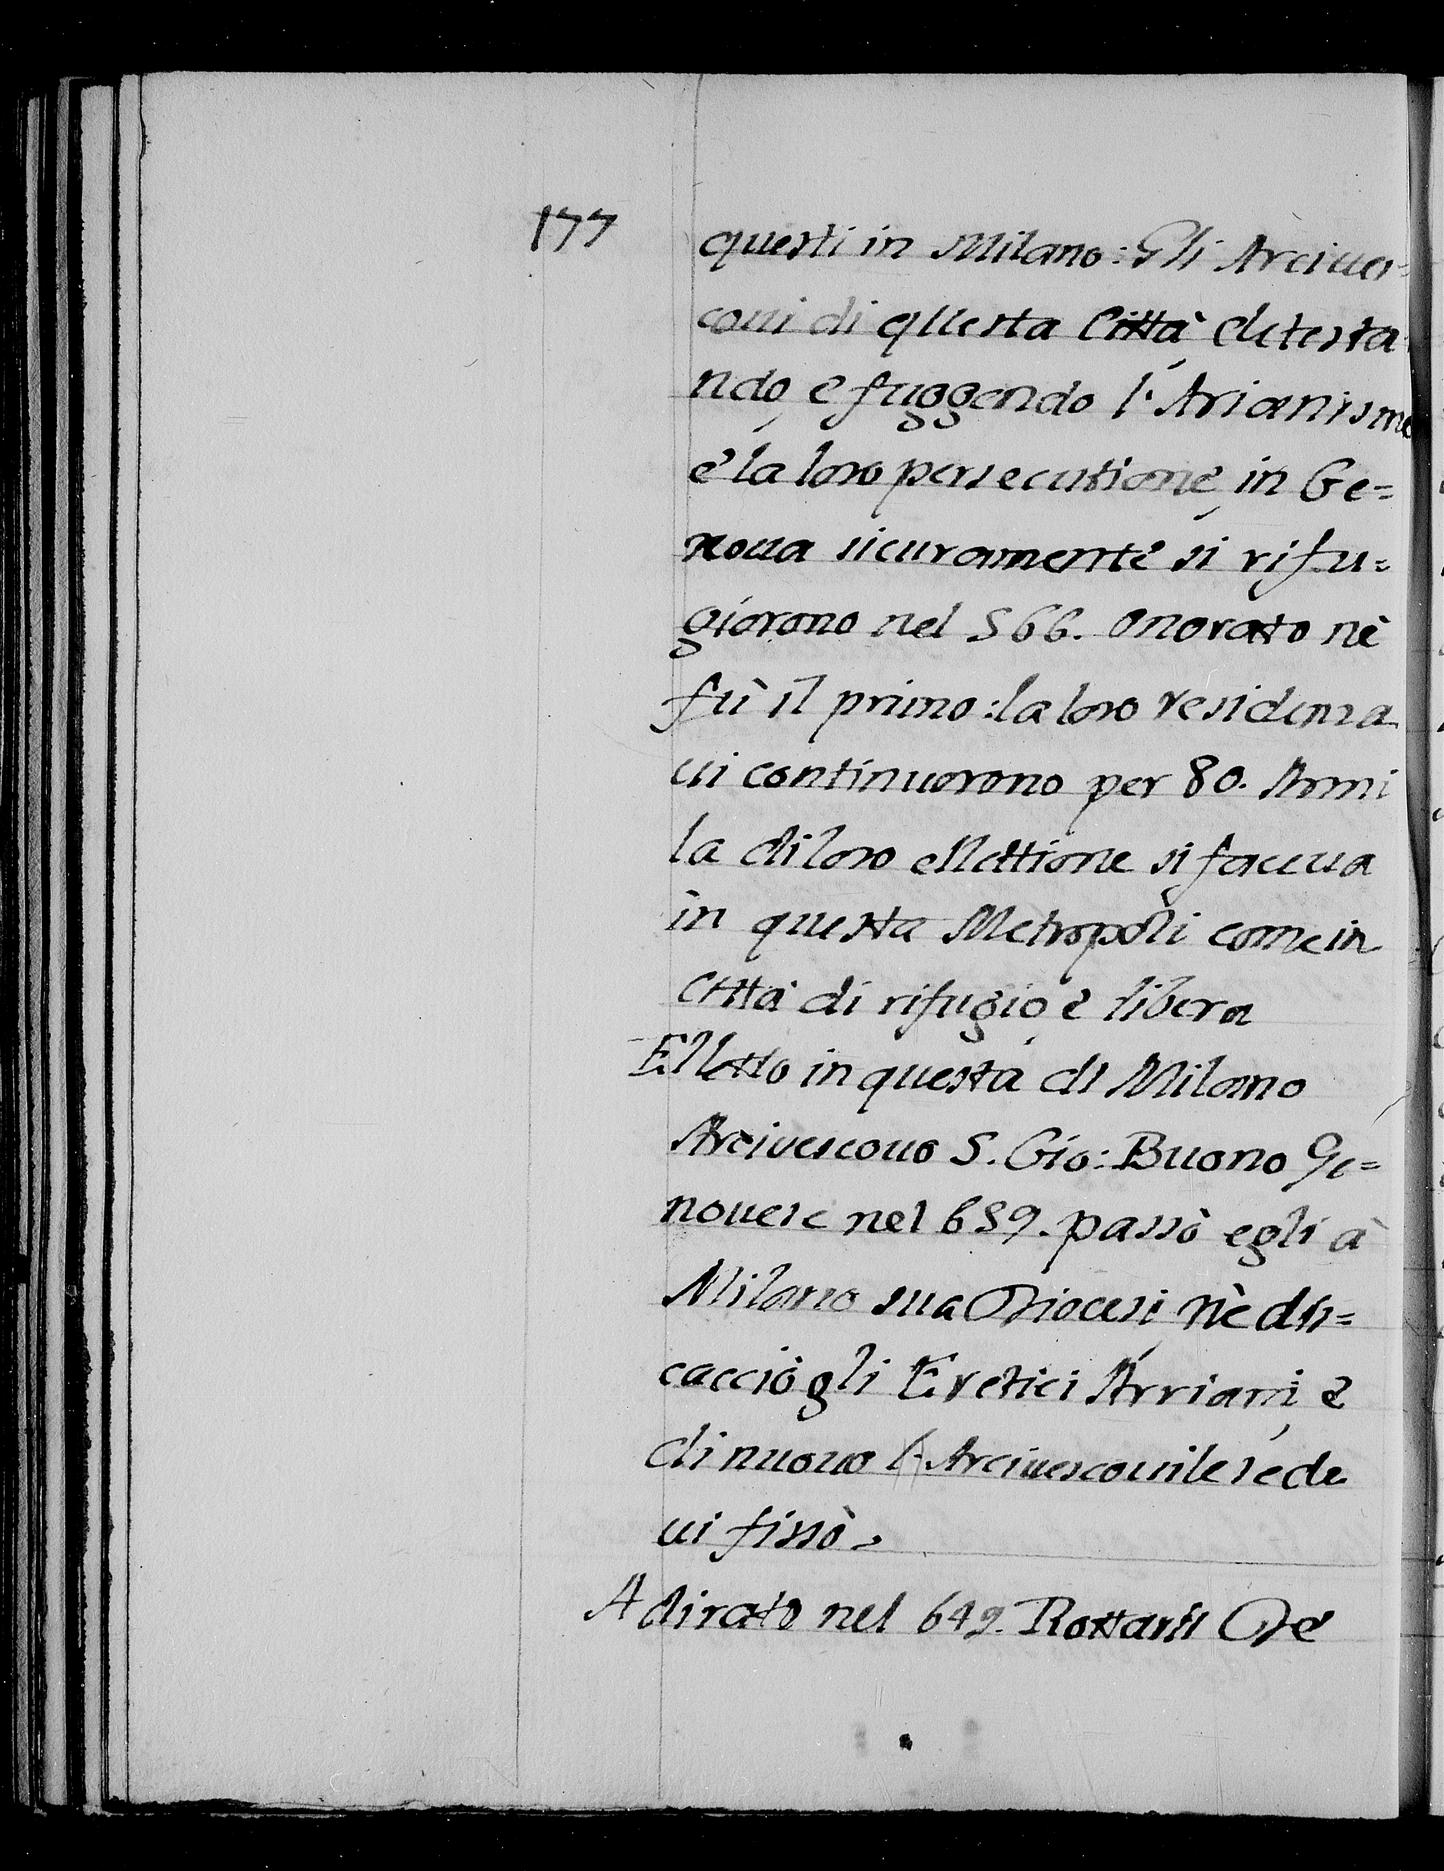 177
questi in Milano: Gli Arciues=
coui di questa Città detesta
ndo, e fuggendo l'Arianismo
e la loro persecutione, in Ge=
noua sicuramente si rifu=
giorono nel 566. Onorato nè
fù il primo: la loro residenza
ui continuorono per 80. Anni
la di loro ellettione si faceua
in questa Metropoli come in
Città di rifugio, e libera
Elletto in questa di Milano
Arciuescouo S. Gio: Buono Ge=
nouese nel 659. passò egli à
Milano sua Diocesi, nè dis=
cacciò gli Eretici Arriani, e
di nuouo l'Arciuescouile sede
ui fissò.
Adirato nel 649. Rottaris Rè